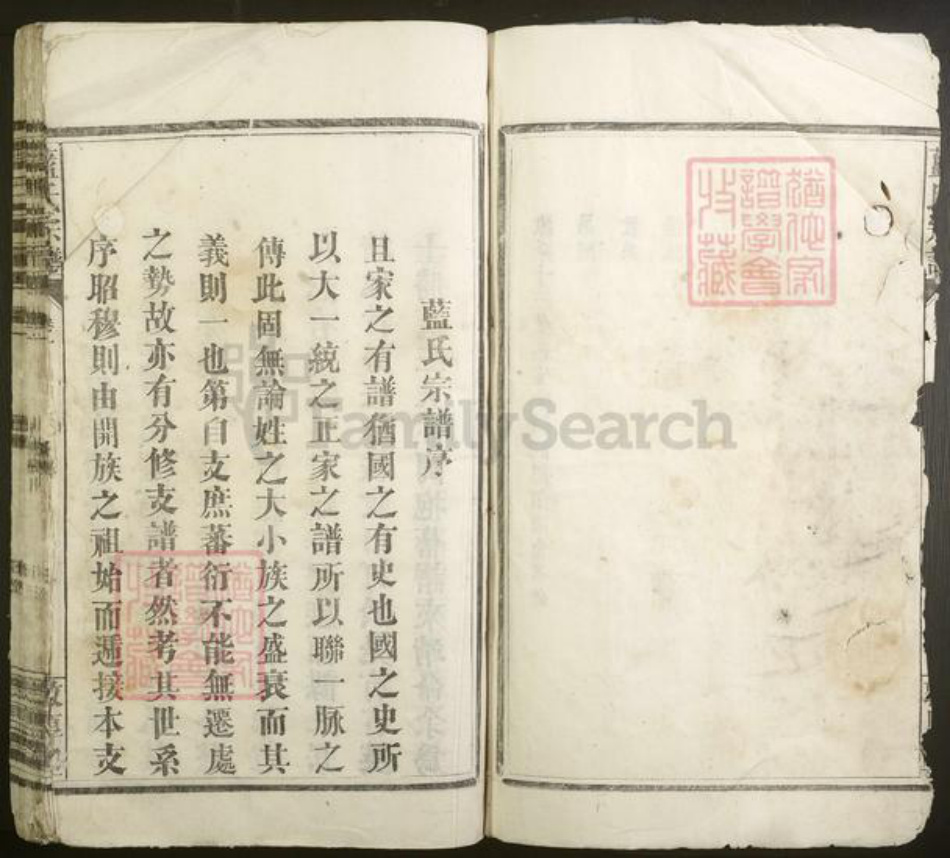 猶他家
譜學會
收藏
藍氏宗譜序
且家之有譜猶國之有史也國之史所
以大一統之正家之譜所以聯一脉之
傳此固無論姓之大小族之盛衰而其
義則一也第自支庶蕃衍不能無遷處
之勢故亦有分修支譜者然考其世系
序昭穆則由開族之祖始而遞援本支
猶他家
譜學會
收藏
藍氏宗譜
卷
FamilySearch